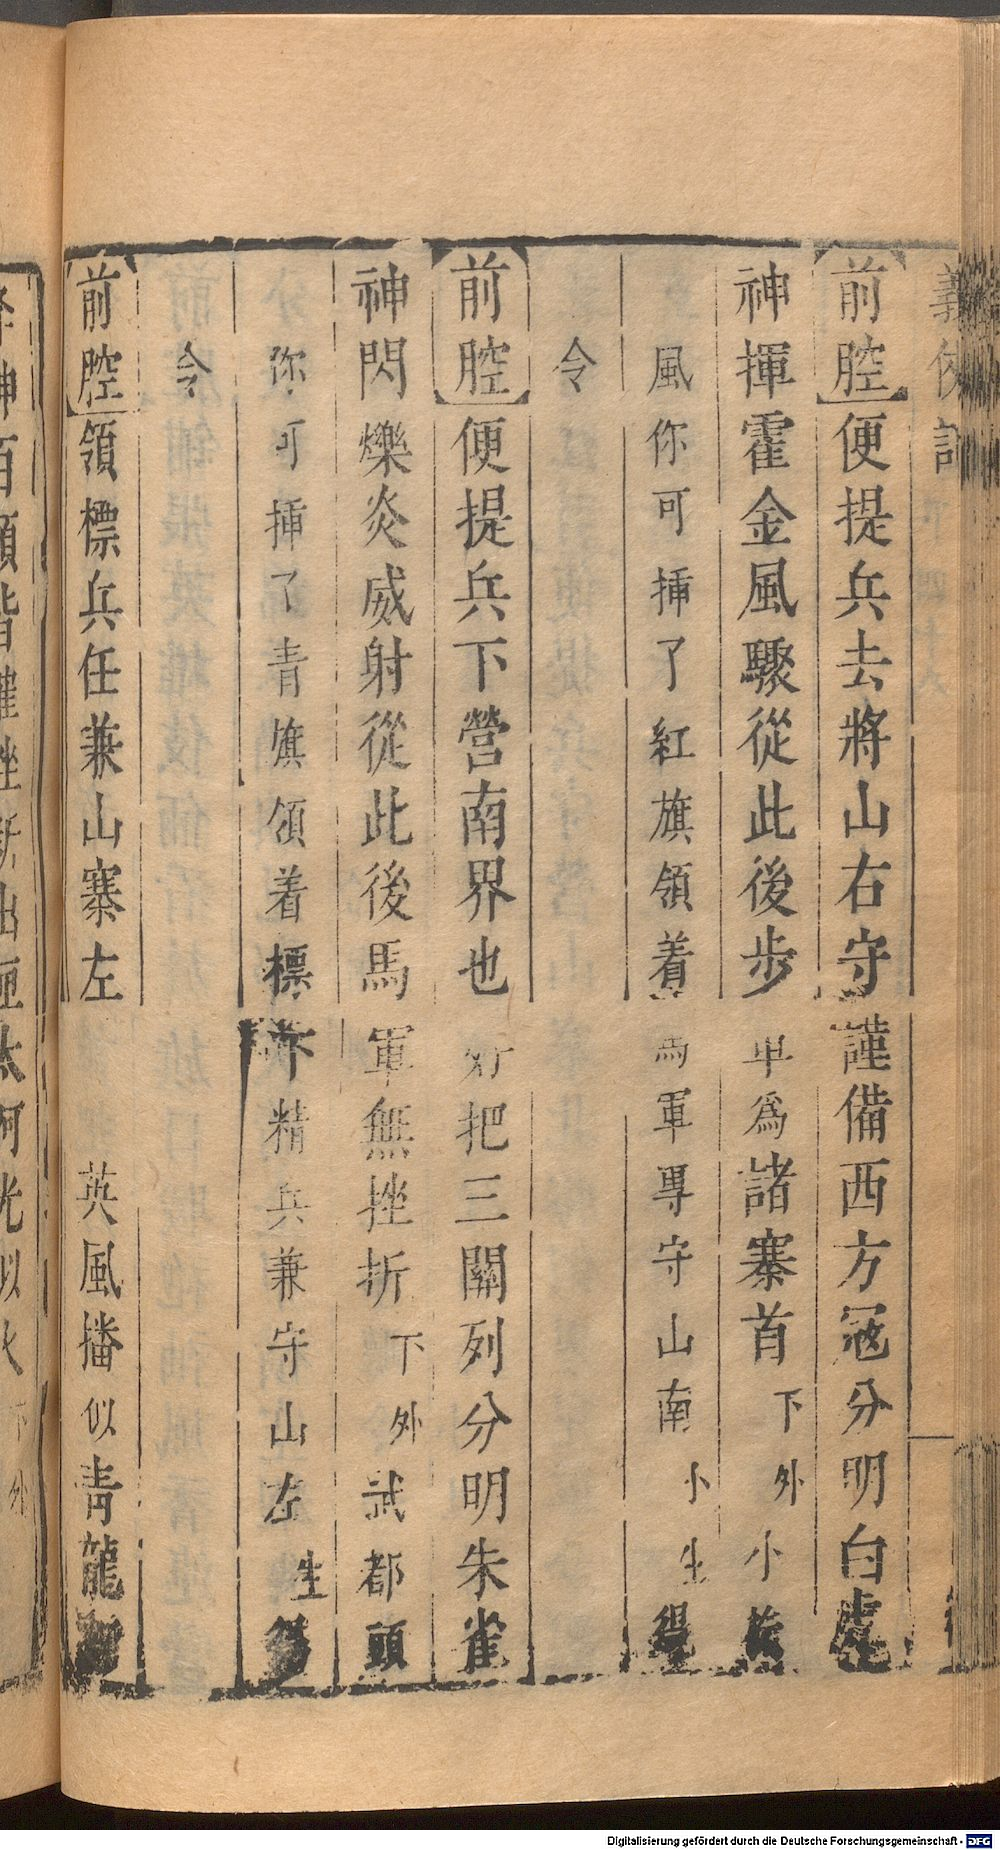 義俠記
前腔便提兵去將山右守謹備西方冦分明白虎
神揮霍金風驟從此後步軍爲諸寨首下外小旋
風你可揷了紅旗領着馬軍專守山南小生得
令
前腔便提兵下營南界也好把三關列分明朱雀
神閃爍炎威射從此後馬軍無挫折下外武都頭
你可揷了青旗領着標下精兵兼守山左生得
令
前腔領標兵任兼山寨左英風播似青龍
神百頭皆摧挫新出匣太阿光似火下外
Digitalisierung gefördert durch die Deutsche Forschungsgemeinschaft - DFG